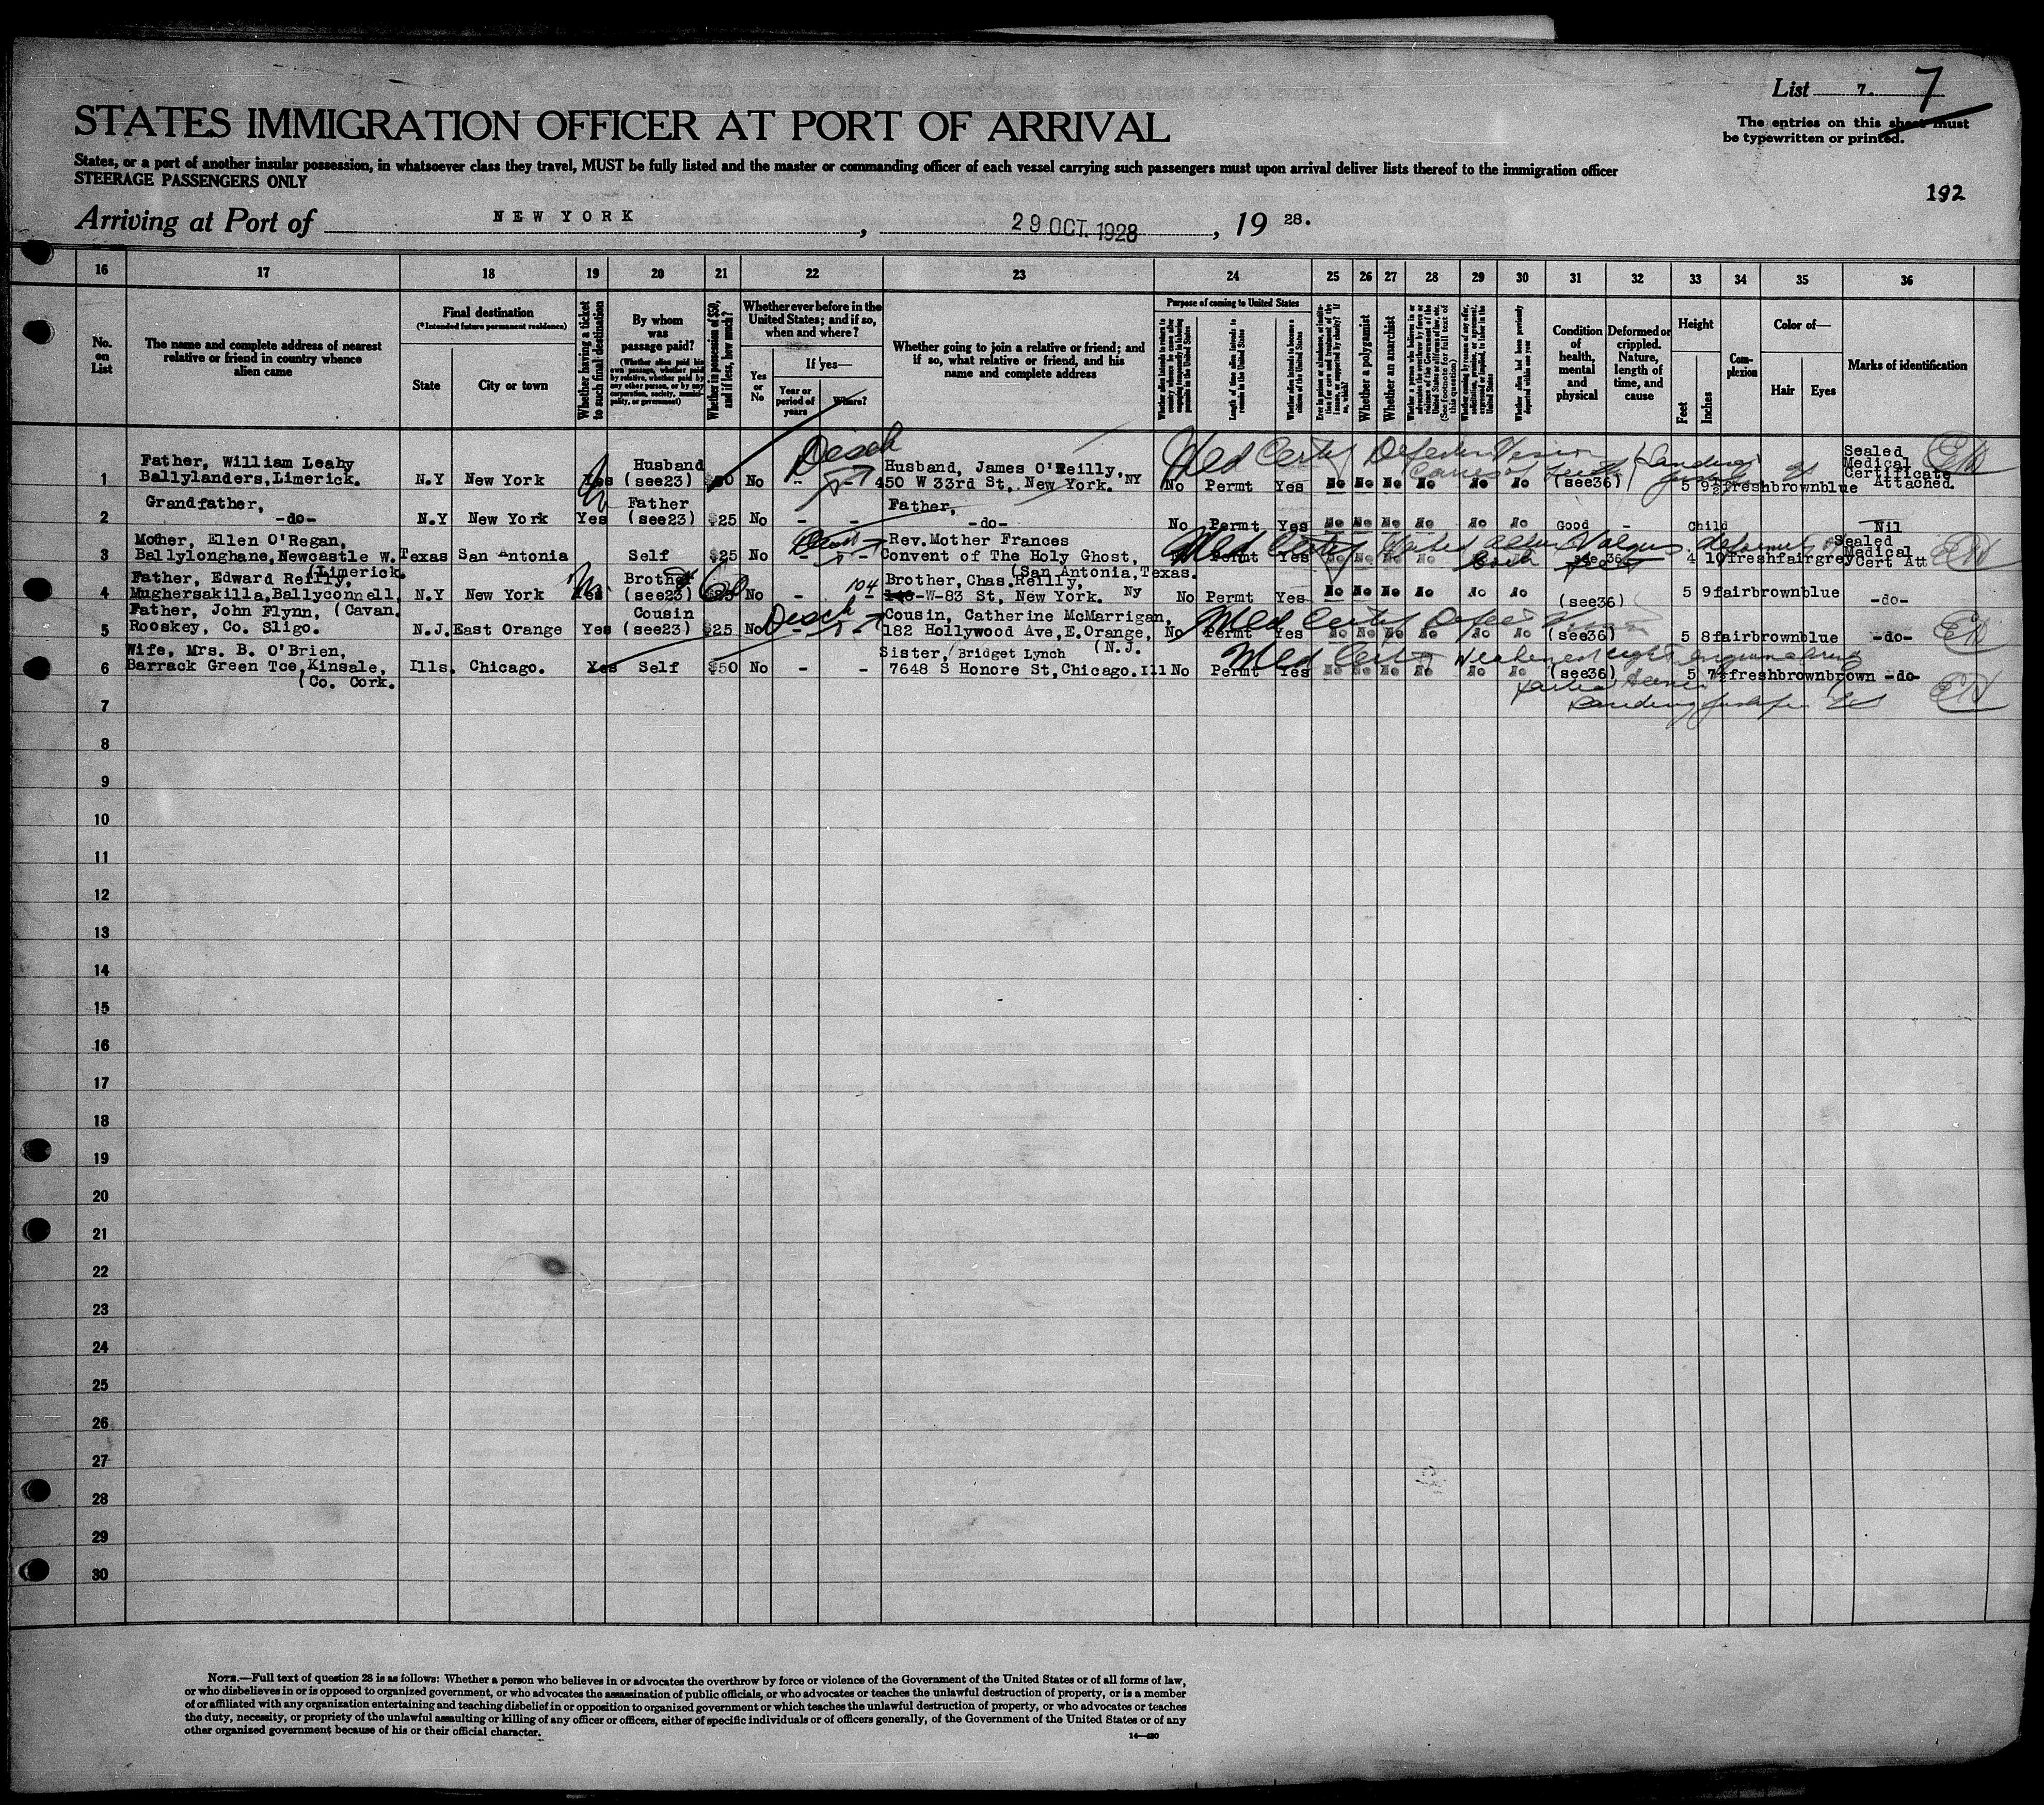 List 7. 7
STATES IMMIGRATION OFFICER AT PORT OF ARRIVAL
The entries on this sheet must
be typewritten or printed.
States, or a port of another insular possession, in whatsoever class they travel, MUST be fully listed and the master or commanding officer of each vessel carrying such passengers must upon arrival deliver lists thereof to the immigration officer
STEERAGE PASSENGERS ONLY
192
Arriving at Port of NEW YORK, 29 OCT. 1928, 19 28.
16 17 18 19 20 21 22 23 24 25 26 27 28 29 30 31 32 33 34 35 36
No. on List
The name and complete address of nearest relative or friend in country whence alien came
Final destination
(*Intended future permanent residence)
State
City or town
Whether having a ticket to such final destination
By whom was passage paid?
(Whether alien paid his own passage, whether paid by relative, whether paid by any other person, or by any corporation, society, municipality, or government)
Whether in possession of $50, and if less, how much?
Whether ever before in the United States; and if so, when and where?
Yes or No
If yes—
Year or period of years
Where?
Whether going to join a relative or friend; and if so, what relative or friend, and his name and complete address
Purpose of coming to United States
Whether alien intends to return to country whence he came after engaging temporarily in laboring pursuits in the United States
Length of time alien intends to remain in the United States
Whether alien intends to become a citizen of the United States
Whether a polygamist
Whether an anarchist
Whether alien had been previously deported within one year
Condition of health, mental and physical
Deformed or crippled. Nature, length of time, and cause
Height
Feet
Inches
Complexion
Color of—
Hair
Eyes
Marks of identification
1 Father, William Leahy
Ballylanders, Limerick. N.Y New York Yes Husband (see23) No - - Husband, James O'Reilly,
450 W 33rd St, New York. NY No Permt Yes No No No No No No (see36) 5 9½ fresh brown blue Sealed Medical Certificate Attached.
Desch Med Certy Defective Vision
2 Grandfather,
-do- N.Y New York Yes Father (see23) $25 No - - Father,
-do- No Permt Yes No No No No No No Good - Child Nil
3 Mother, Ellen O'Regan,
Ballylonghane, Newcastle W. (Limerick. Texas San Antonia Self $25 No - - Rev. Mother Frances
Convent of The Holy Ghost, (San Antonia, Texas. Permt Yes see36 4 10 fresh fair grey Sealed Medical Cert Att
Med Certy
4 Father, Edward Reilly,
Mugherskilla, Ballyconnell, (Cavan. N.Y New York Yes Brother (see23) No - 104 Brother, Chas. Reilly,
-W-83 St, New York. Ny No Permt Yes No No No No No No (see36) 5 9 fair brown blue -do-
5 Father, John Flynn,
Rooskey, Co. Sligo. N.J. East Orange Yes Cousin (see23) $25 No - - Cousin, Catherine McMarrigan,
182 Hollywood Ave, E. Orange, (N.J. No Permt Yes No No No No No No (see36) 5 8 fair brown blue -do-
Desch Med Certy
6 Wife, Mrs. B. O'Brien,
Barrack Green Tce, Kinsale, (Co. Cork. Ills. Chicago. Yes Self $50 No - - Sister, Bridget Lynch
7648 S Honore St, Chicago. Ill No Permt Yes No No No No No No (see36) 5 7½ fresh brown brown -do-
Med Certy
7
8
9
10
11
12
13
14
15
16
17
18
19
20
21
22
23
24
25
26
27
28
29
30
NOTE.—Full text of question 28 is as follows: Whether a person who believes in or advocates the overthrow by force or violence of the Government of the United States or of all forms of law,
or who disbelieves in or is opposed to organized government, or who advocates the assassination of public officials, or who advocates or teaches the unlawful destruction of property, or is a member
of or affiliated with any organization entertaining and teaching disbelief in or opposition to organized government or which teaches the unlawful destruction of property, or who advocates or teaches
the duty, necessity, or propriety of the unlawful assaulting or killing of any officer or officers, either of specific individuals or of officers generally, of the Government of the United States or of any
other organized government because of his or their official character.
14—430